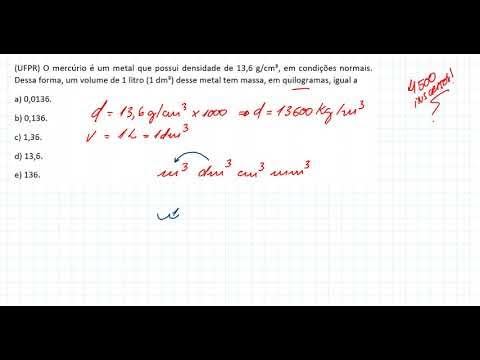 (UFPR) O mercúrio é um metal que possui densidade de 13,6 g/cm³, em condições normais.
Dessa forma, um volume de 1 litro (1 dm³) desse metal tem massa, em quilogramas, igual a
a) 0,0136.
b) 0,136.
c) 1,36.
d) 13,6.
e) 136.
d = 13,6 g/cm³ x 1000 ⇒ d = 13600 Kg/m³
V = 1L = 1dm³
m³ dm³ cm³ mm³
4500
inscritos!